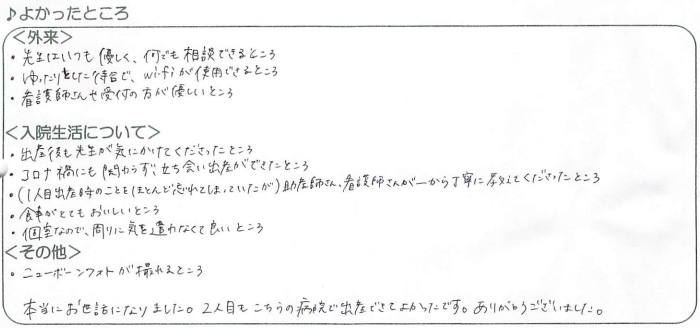 ♪よかったところ
<外来>
・先生はいつも優しく、何でも相談できるところ
・ゆったりとした待合で、wi-fiが使用できるところ
・看護師さんや受付の方が優しいところ
<入院生活について>
・出産後も先生が気にかけてくださったところ
・コロナ禍にも関わらず立ち会い出産ができたところ
・(1人目出産時のこともほとんど忘れてしまっていたが)助産師さん、看護師さんが一から丁寧に教えてくださったところ
・食事がとてもおいしいところ
・個室なので、周りに気を遣わなくて良いところ
<その他>
・ニューボーンフォトが撮れるところ
本当にお世話になりました。2人目もこちらの病院で出産できてよかったです。ありがとうございました。